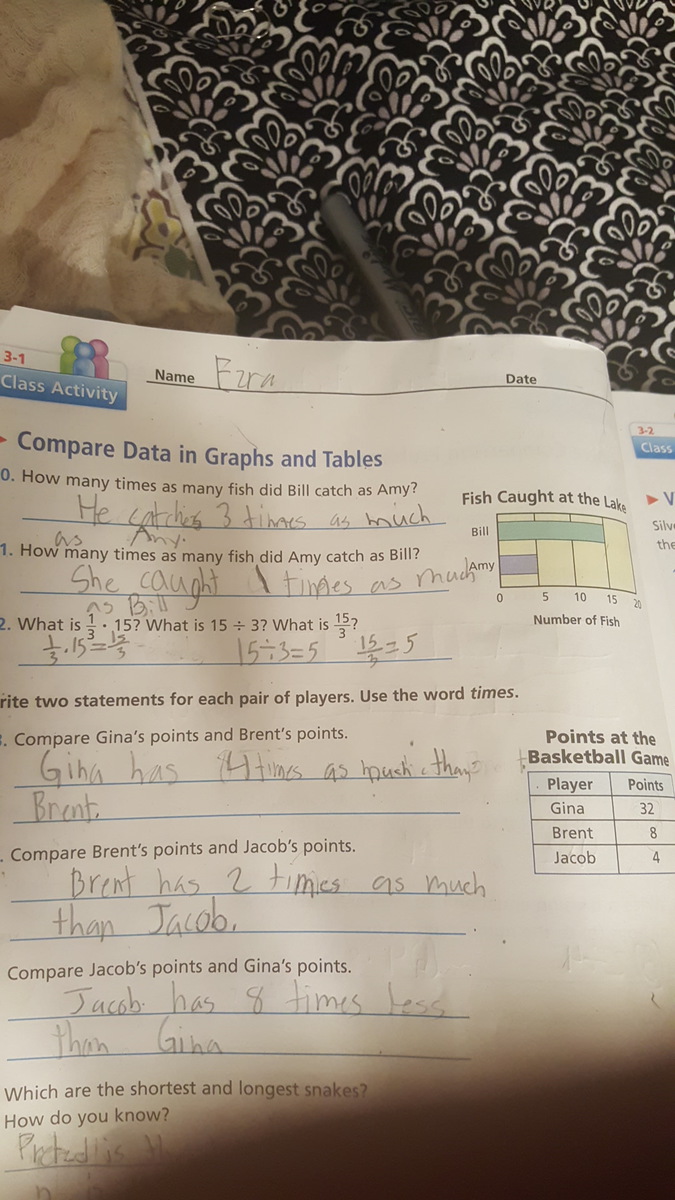 3-1
Class Activity
Name Ezra
Date
3-2
Class
Compare Data in Graphs and Tables
0. How many times as many fish did Bill catch as Amy?
He catches 3 times as much
as Amy.
1. How many times as many fish did Amy catch as Bill?
She caught 1 times as much
as Bill
2. What is 1/3 · 15? What is 15 ÷ 3? What is 15/3?
1/3 · 15 = 15/3 15÷3=5 15/3=5
Fish Caught at the Lake
Bill
Amy
0 5 10 15 20
Number of Fish
V
Silv
the
rite two statements for each pair of players. Use the word times.
. Compare Gina's points and Brent's points.
Gina has 4 times as much than
Brent.
. Compare Brent's points and Jacob's points.
Brent has 2 times as much
than Jacob.
Compare Jacob's points and Gina's points.
Jacob has 8 times less
than Gina
Points at the
Basketball Game
Player Points
Gina 32
Brent 8
Jacob 4
Which are the shortest and longest snakes?
How do you know?
is